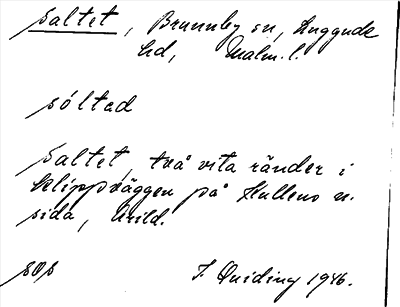 Saltet, Brunnby sn, Luggude
hd, Malm. l.
sóltad
Saltet, två vita ränder i
klippväggen på Kullens n.
sida, Arild.
SOS
I. Quiding 1946.